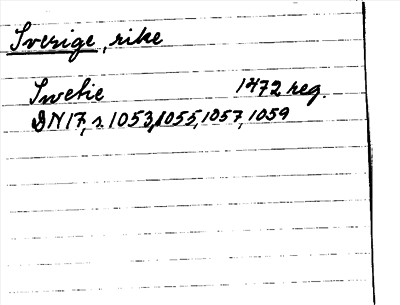 Sverige, rike
Swetie 1472 reg.
DN17, s. 1053, 1055, 1057, 1059